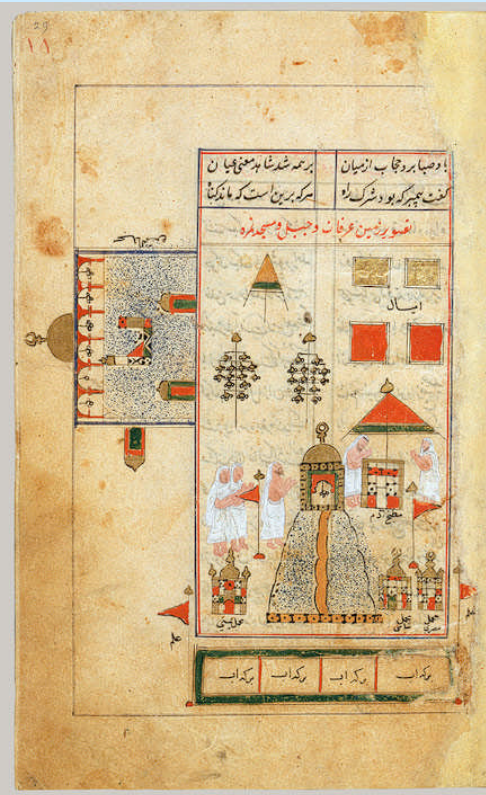 29
١١
باد صبا برد حجاب از میان بر همه شد شاهد معنی عیان
گفت پیمبر که بود شرک راه هر که برین است که ماند گناه
تصویر زمین عرفات و جبل و مسجد نمره
مطبخ آدم
محمل یمنی
محمل شامی
محمل مصری
علم
علم
برکه آب برکه آب برکه آب برکه آب